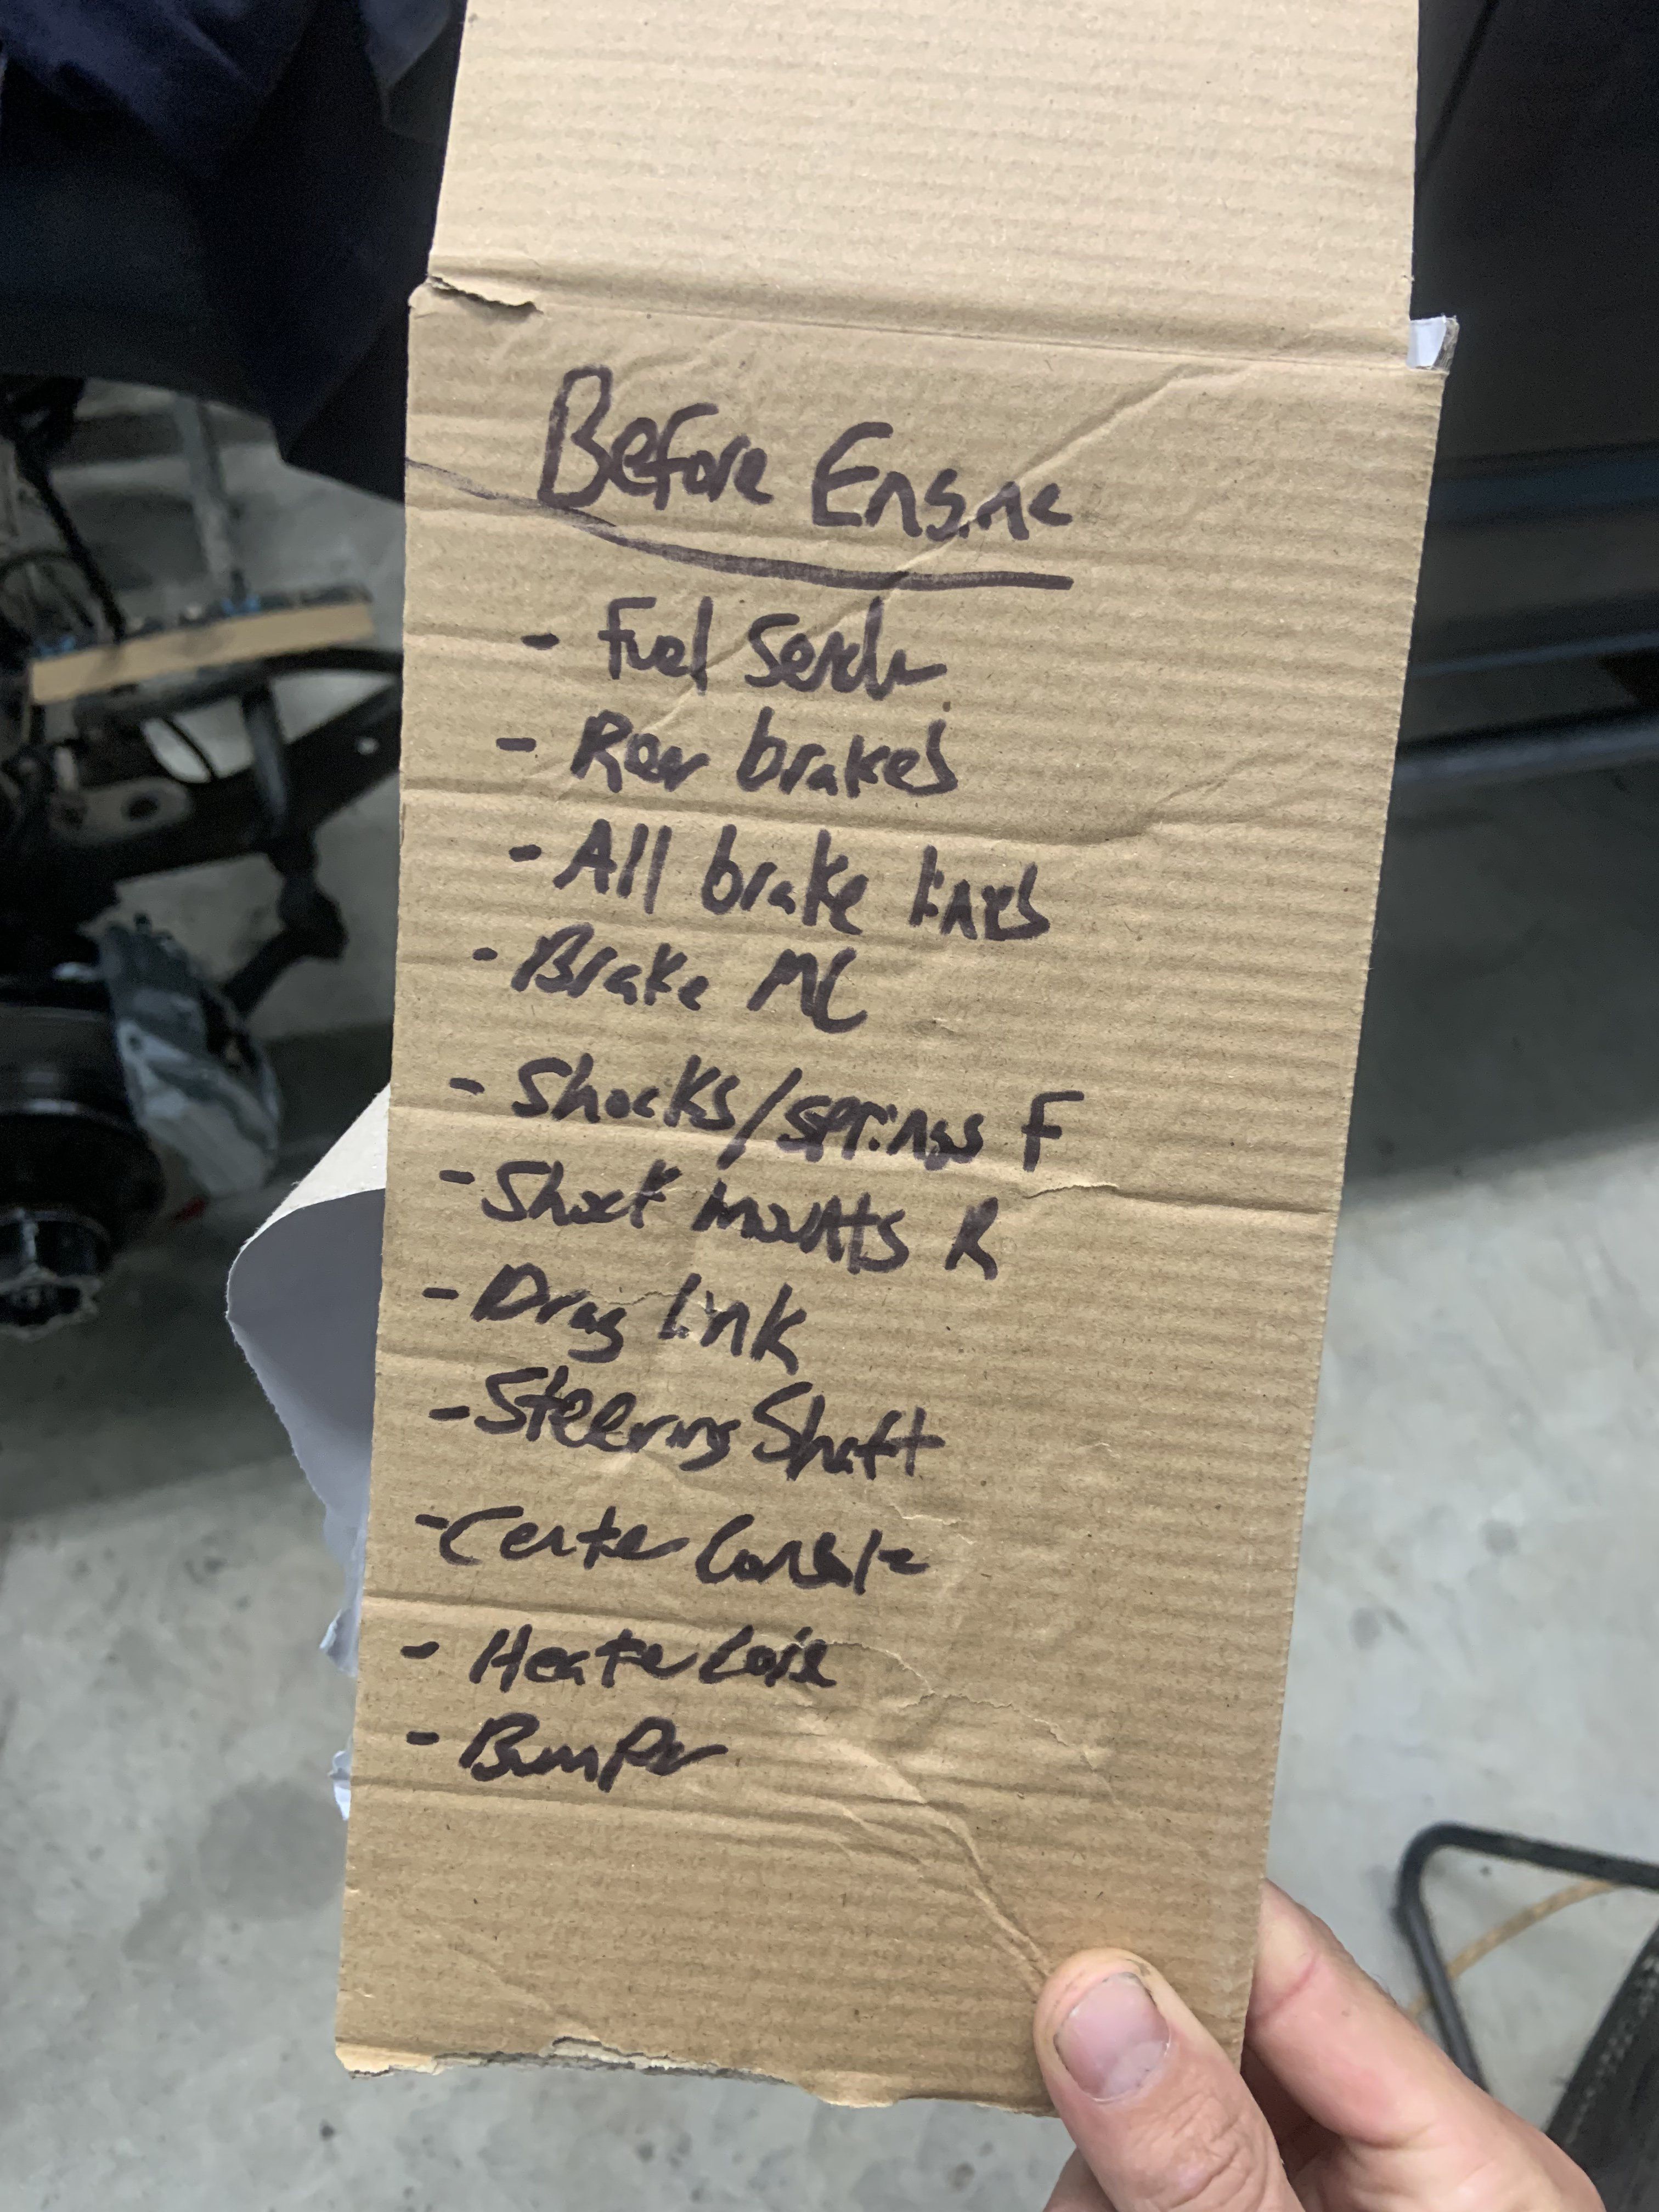 Before Engine
- Fuel Sender
- Rear brakes
- All brake lines
- Brake MC
- Shocks/springs F
- Shock mounts R
- Drag link
- Steering Shaft
- Center Console
- Heater Core
- Bumper